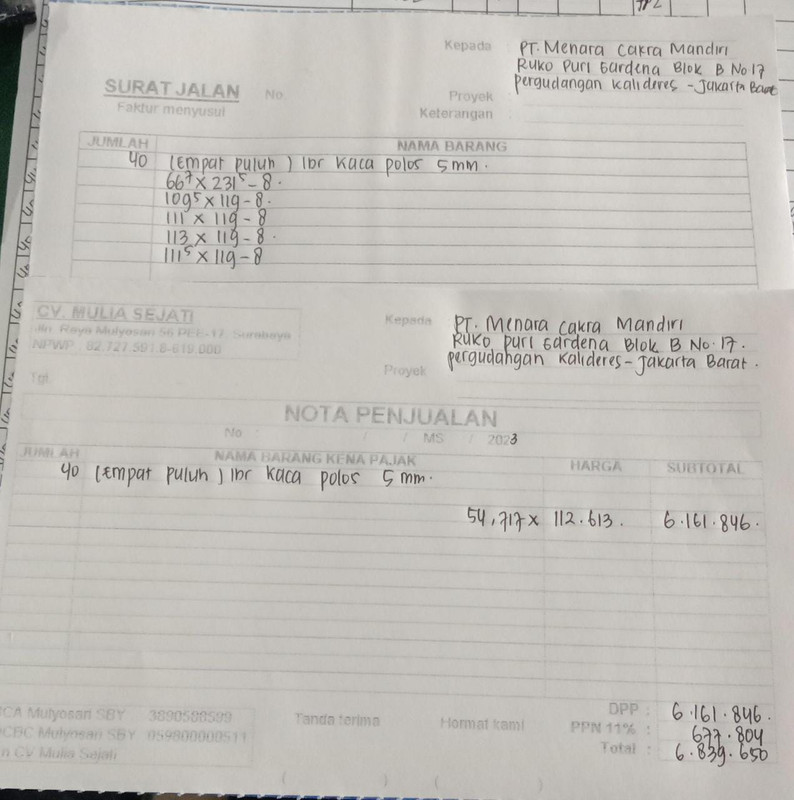 Kepada PT. Menara Cakra Mandiri
Ruko Puri Gardena Blok B No 17
Pergudangan Kalideres - Jakarta Barat
SURAT JALAN No
Faktur menyusul
Proyek
Keterangan
JUMLAH NAMA BARANG
40 (Empat Puluh) lbr Kaca polos 5 mm.
66⁷ x 231⁵ - 8.
109⁵ x 119 - 8.
111 x 119 - 8
113 x 119 - 8.
111⁵ x 119 - 8
CV. MULIA SEJATI
Jln. Raya Mulyosari 56 PEE-17, Surabaya
NPWP : 82.727.591.8-619.000
Kepada PT. Menara Cakra Mandiri
Ruko Puri Gardena Blok B No. 17.
Pergudangan Kalideres - Jakarta Barat.
Proyek
Tgl.
NOTA PENJUALAN
No. / / MS / 2023
JUMLAH NAMA BARANG KENA PAJAK HARGA SUBTOTAL
40 (Empat Puluh) lbr Kaca polos 5 mm.
54,717 x 112.613. 6.161.846.
CA Mulyosari SBY 3890588599
CBC Mulyosari SBY 059800000511
n CV Mulia Sejati
Tanda terima Hormat kami
( ) ( )
DPP : 6.161.846.
PPN 11% : 677.804
Total : 6.839.650